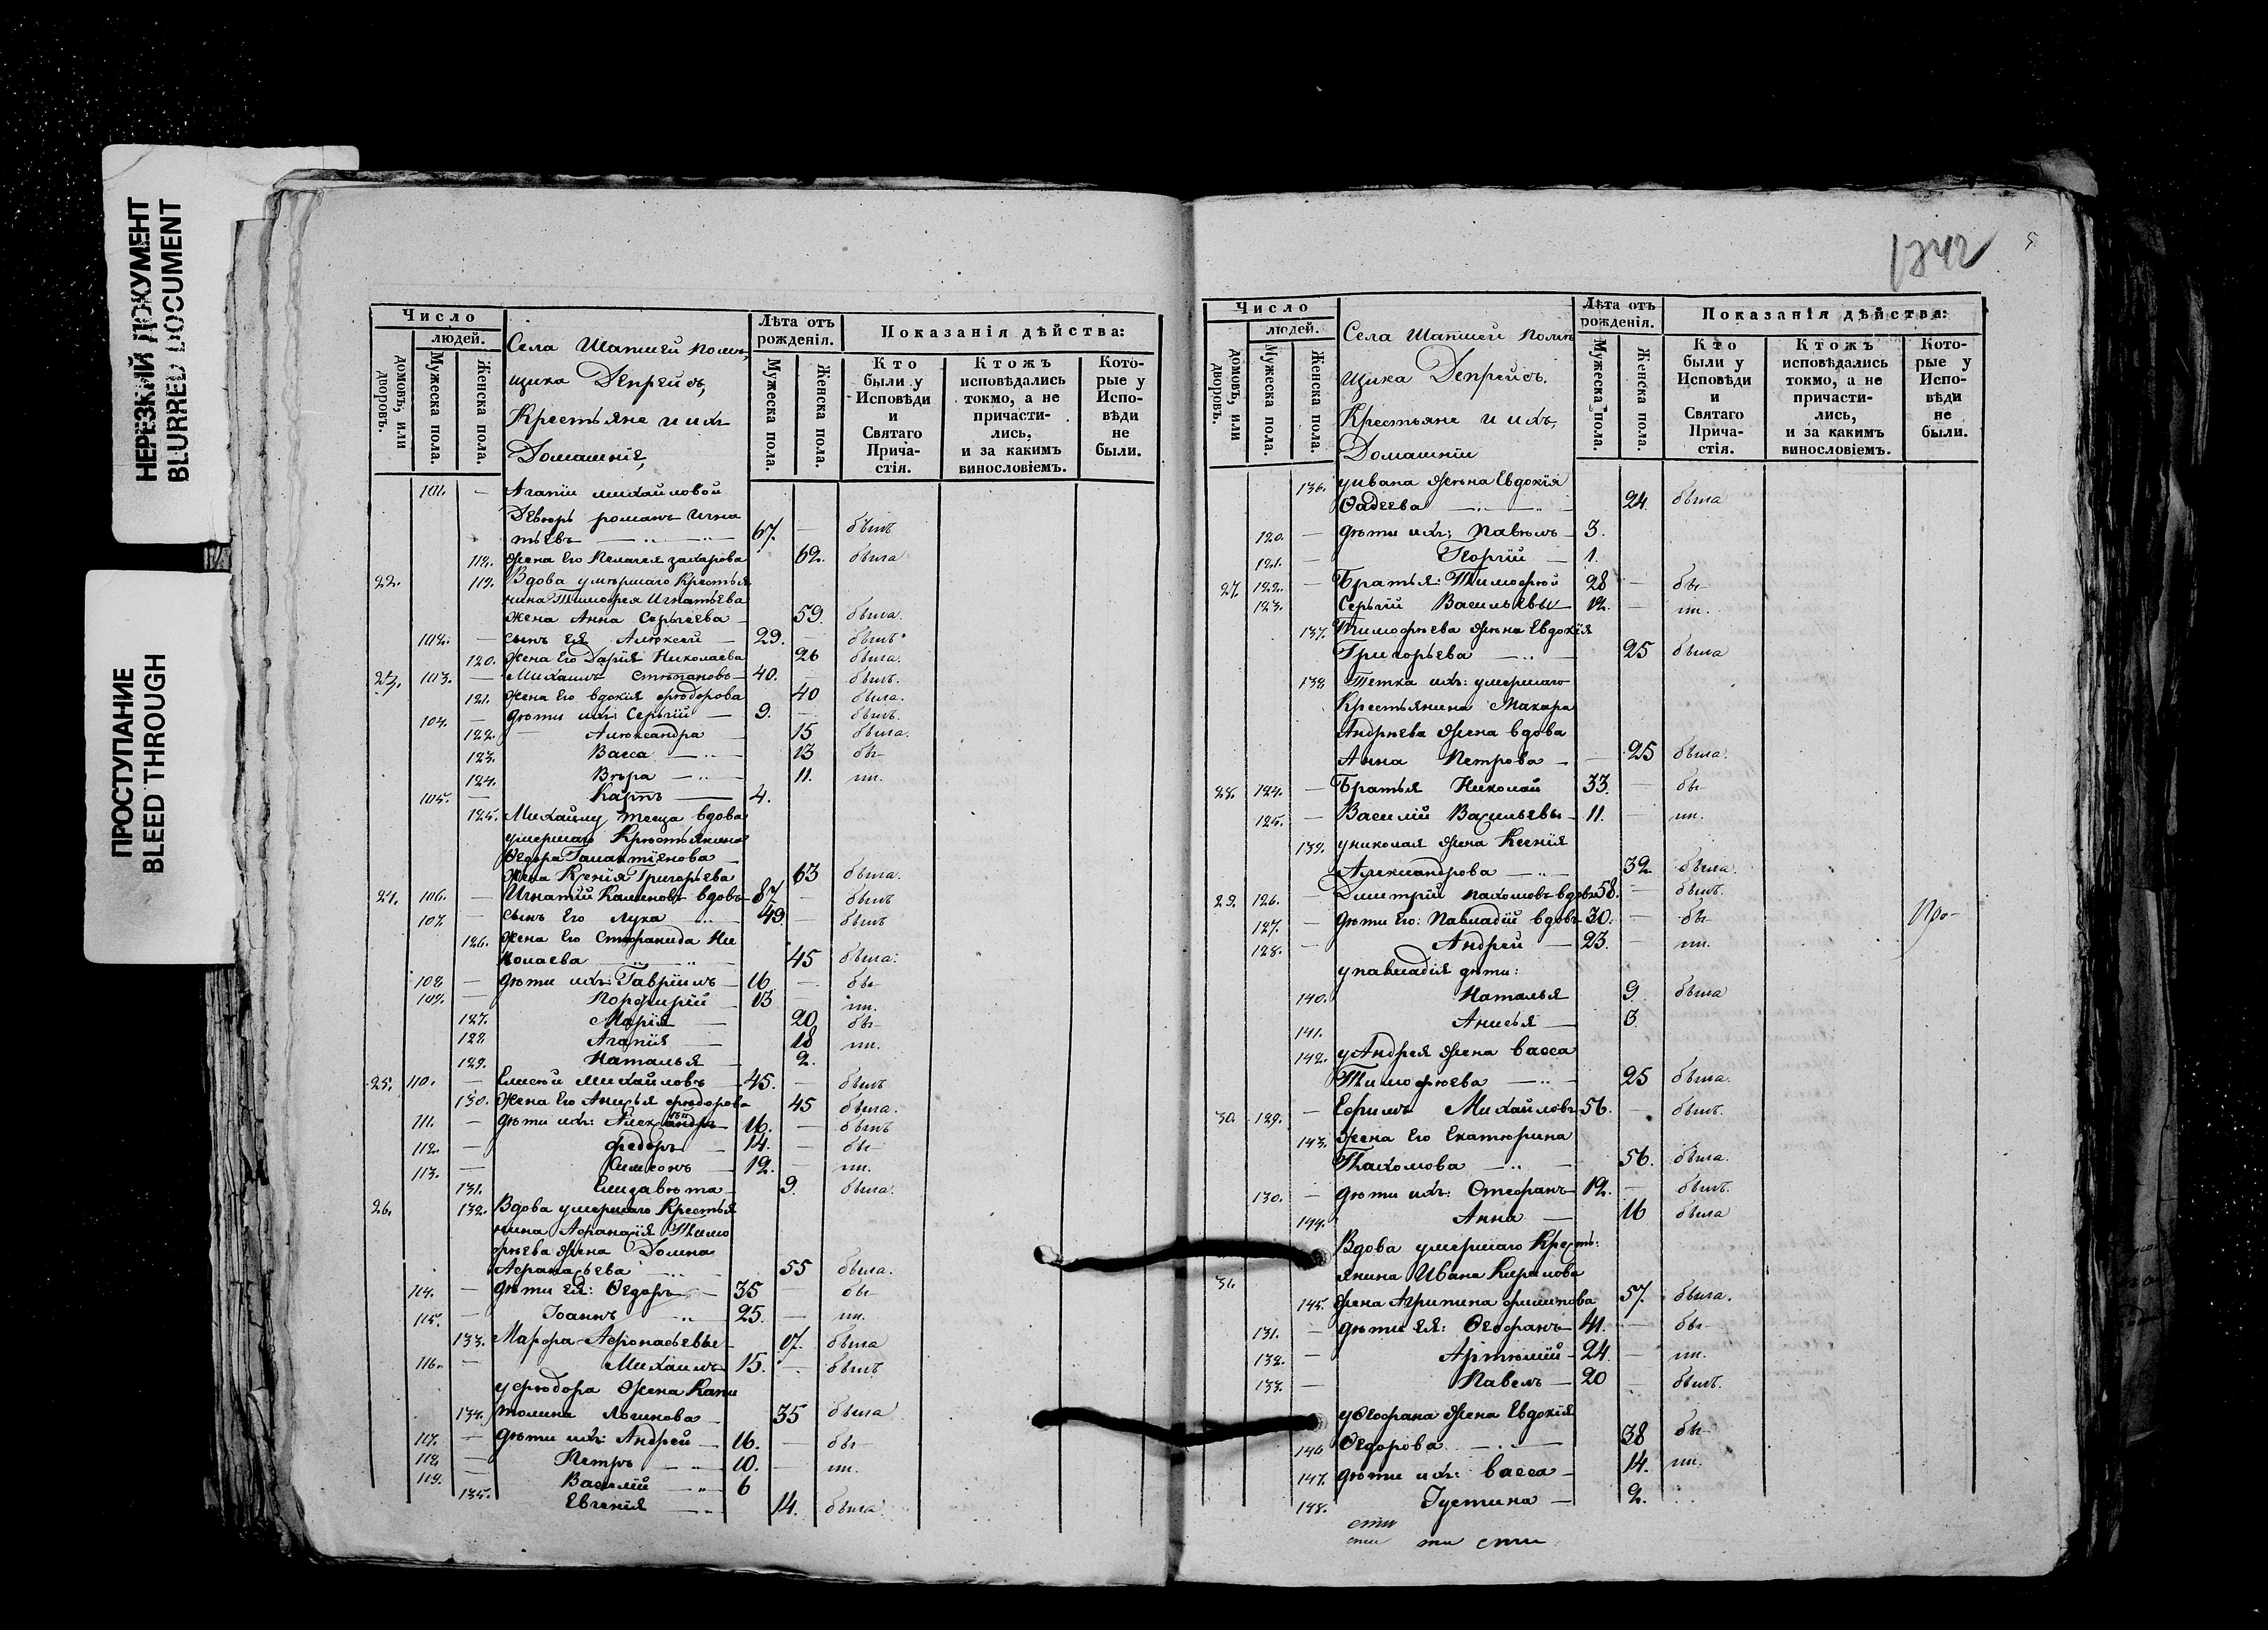 НЕРЕЗКИЙ ДОКУМЕНТ
BLURRED DOCUMENT
ПРОСТУПАНИЕ
BLEED THROUGH
Число
людей.
домовъ, или дворовъ.
Мужеска пола.
Женска пола.
Села Шатшей помѣ
щика Депрейсъ,
Крестьяне и ихъ
Домашнія,
Лѣта отъ рожденія.
Мужеска пола.
Женска пола.
Показанія дѣйства:
Кто были у Исповѣди и Святаго Прича-стія.
Ктожъ исповѣдались токмо, а не причасти-лись, и за какимъ винословіемъ.
Кото-рые у Испо-вѣди не были.
101. — Агапіи михайловой
Деверь романъ Игна
тьевъ 67. — былъ
118. Жена Его Пелагея захарова 62. была
22. 119. Вдова умершаго Крестья
нина Тимофея Игнатьева
жена Анна Сергеева 59. была.
102. — сынъ Ея Алексей — 29. — былъ
120. Жена Его Дарія Николаева 26 была.
23. 103. — Михаилъ Степановъ 40. — былъ.
121. Жена Его Евдокія федорова 40 была.
104. — дѣти ихъ: Сергій — 9. — былъ.
122. Александра 15 была.
123. Васса 13 бы-
124. Вѣра 11. ли.
105. — Карпъ — 4.
125. Михаилу теща вдова
умершаго Крестьянина
Ѳедора Галактіонова
жена Ксенія Григорьева 63 была.
24. 106. — Игнатій Калиновъ вдовъ 87. — былъ
107. — сынъ Его Лука 49. — былъ
126. Жена Его Стефанида Ни
колаева 45 была.
108. — дѣти ихъ: Гавріилъ 16. — бы-
109. — Порфирій — 13 — ли.
127. Марія — 20 бы-
128. Агапія — 18 ли.
129. Наталья — 2.
25. 110. — Елисей Михайловъ 45. — былъ
130. Жена Его Анисья федорова 45 была.
111. — дѣти ихъ: Алексѣй 16. — былъ
112. — федоръ — 14. — бы-
113. — Симеонъ — 12. — ли.
131. Елизавета — 9. была.
26. 132. Вдова умершаго Крестья
нина Афанасія Тимо
фѣева жена Домна
Афанасьева 55 была.
114. — дѣти Ея: Ѳедоръ — 35 — бы-
115. — Іоаннъ 25. — ли.
133. Марфа Афонасьевы 17. была
116. — Михаилъ 15. — былъ
у федора жена Капи
134. толина Логинова — 35 была
117. — дѣти ихъ: Андрей — 16. — бы-
118. — Петръ 10. — ли.
119. — Василій 6
135. Евгенія 14. была.
1242
5
Число
людей.
домовъ, или дворовъ.
Мужеска пола.
Женска пола.
Села Шатшей помѣ
щика Депрейсъ.
Крестьяне и ихъ
Домашніи
Лѣта отъ рожденія.
Мужеска пола.
Женска пола.
Показанія дѣйства:
Кто были у Исповѣди и Святаго Прича-стія.
Ктожъ исповѣдались токмо, а не причасти-лись, и за какимъ винословіемъ.
Кото-рые у Испо-вѣди не были.
136. у Ивана жена Евдокія
Ѳадеева 24. была
120. — дѣти ихъ: Павелъ — 3.
121. — Георгій — 1.
27. 122. — Братья: Тимофей 28 — бы-
123. Сергій Васильевы 12. — ли.
137. Тимофеева жена Евдокія
Григорьева 25 была
138 Тетка ихъ: умершаго
Крестьянина Макара
Андреева жена вдова
Анна Петрова — 25 была.
28. 124. — Братья Николай 33. — бы-
125. — Василій Васильевы — 11. — ли.
139. у николая жена Ксенія
Александрова 32. была.
29. 126. — Димитрій Пахомовъ вдовъ 58. — былъ.
127. — дѣти Его: Палладій вдовъ 30. — бы-
128. — Андрей — 23. — ли.
у палладія дѣти:
140. Наталья 9. была
141. Анисья — 3.
142. у Андрея жена васса
Тимофеева 25 была.
30. 129. — Ефимъ Михайловъ 56. — былъ.
143. Жена Его Екатерина
Пахомова 56. была.
130. — дѣти ихъ: Стефанъ 12. — былъ.
144. Анна — 16 была
Вдова умершаго Кресть:
31. янина Ивана Кирилова
145. жена Агрипина филипова 57. была.
131. — дѣти Ея: Ѳеофанъ 41. — бы-
132. — Артемій 24. — ли.
133. — Павелъ — 20 — былъ.
у Ѳеофана жена Евдокія
146. Ѳедорова 38 бы-
147. дѣти ихъ: васса — 14. ли.
148. Іустина — 2.
Про-
сти
сти ти сти